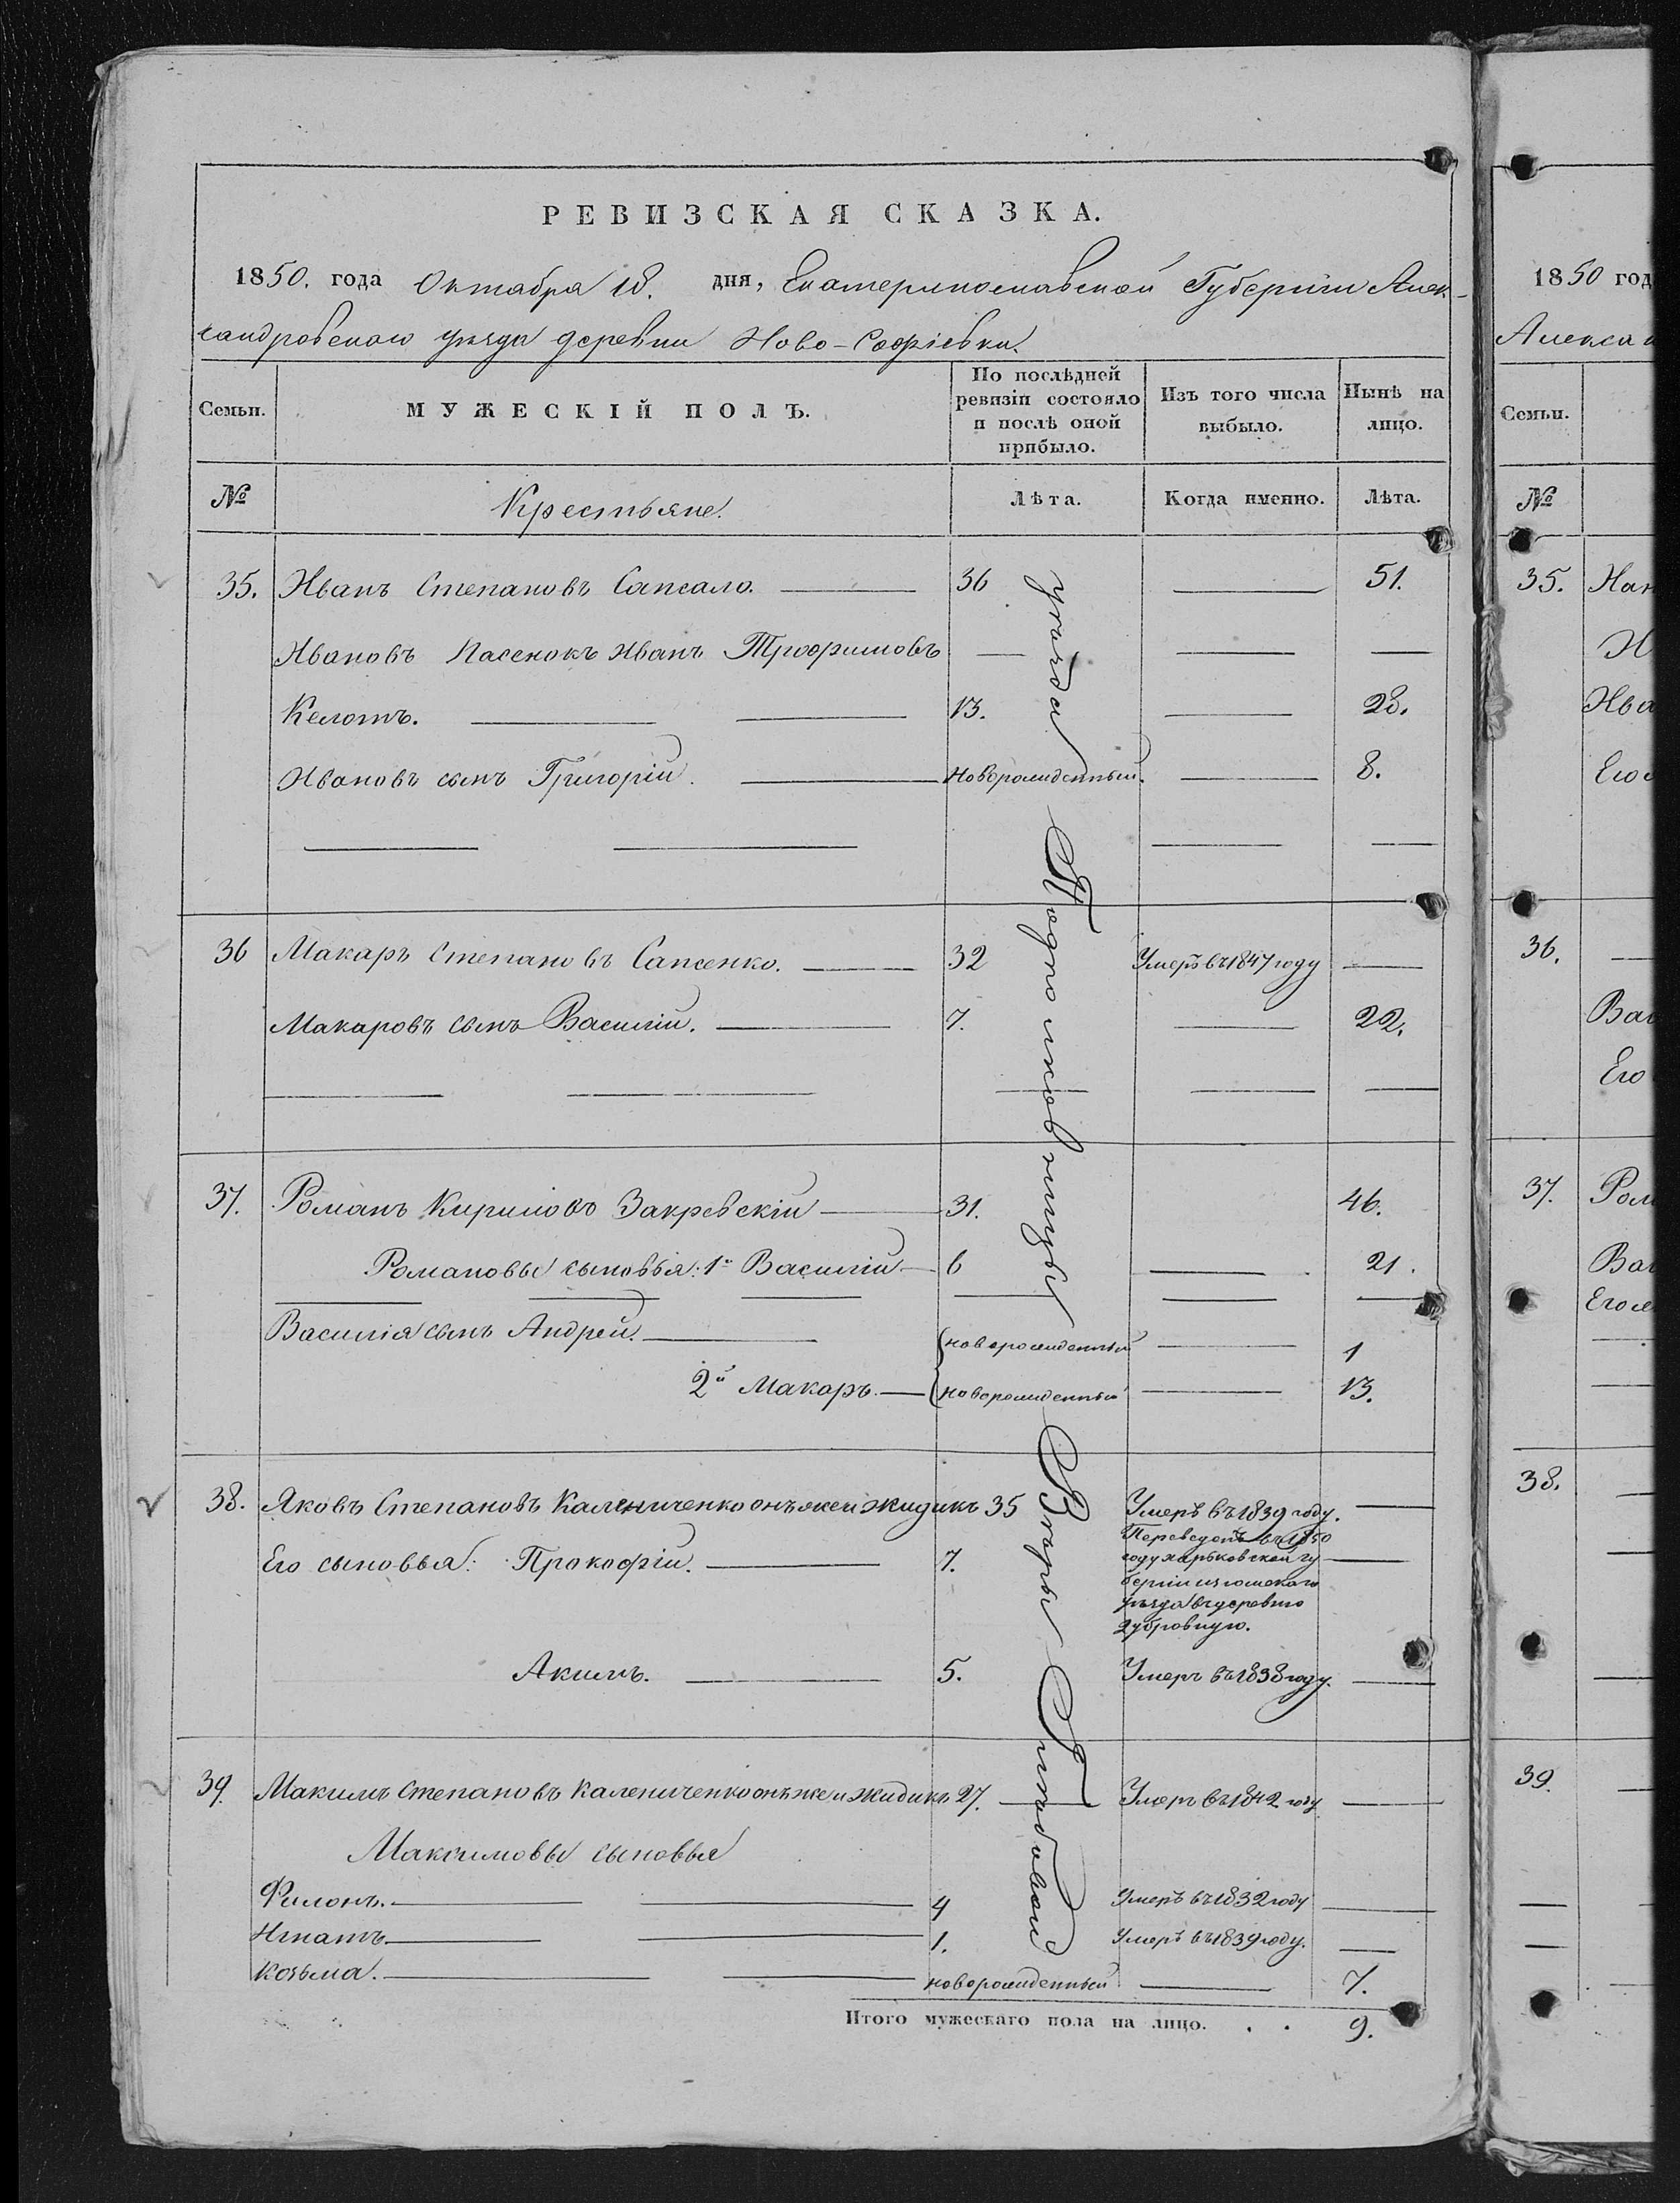 РЕВИЗСКАЯ СКАЗКА.
1850. года Октября 18. дня, Екатеринославской Губерніи Алек-
сандровскаго уѣзда деревни Ново-Софіевки.
Семьи. МУЖЕСКІЙ ПОЛЪ. По послѣдней ревизіи состояло и послѣ оной прибыло. Изъ того числа выбыло. Нынѣ на лицо.
№ Крестьяне. Лѣта. Когда именно. Лѣта.
35. Иванъ Степановъ Сапсало. 36 51.
Ивановъ Пасенокъ Иванъ Трофимовъ
Келотъ. 13. 28.
Ивановъ сынъ Григорій. новорожденный. 8.
36 Макаръ Степановъ Сапсенко. 32 Умеръ въ 1847 году
Макаровъ сынъ Василій. 7. 22.
37. Романъ Кириловъ Закревскій 31. 46.
Романовы сыновья: 1й Василій 6 21.
Василія сынъ Андрей. новорожденный 1
2й Макаръ. новорожденный 13.
38. Яковъ Степановъ Калениченко онъ же и Жидикъ 35 Умеръ въ 1839 году.
Его сыновья: Прокофій. 7. Переведенъ въ 1850
году харьковской гу
берніи изюмскаго
уѣзда въ деревню
дубровную.
Акимъ. 5. Умеръ въ 1838 году.
39. Максимъ Степановъ Калениченко онъ же и Жидикъ 27. Умеръ въ 1842 году
Максимовы сыновья
Филонъ. 4 Умеръ въ 1832 году
Игнатъ. 1. Умеръ въ 1839 году.
Козьма. новорожденный 7.
Итого мужескаго пола на лицо. . . 9.
уѣзда Подполковницы
1850 год
Алекса
Семьи.
№
35.
Ива
Его
36.
Вас
Его
37. Ром
Вас
Его
38.
39.